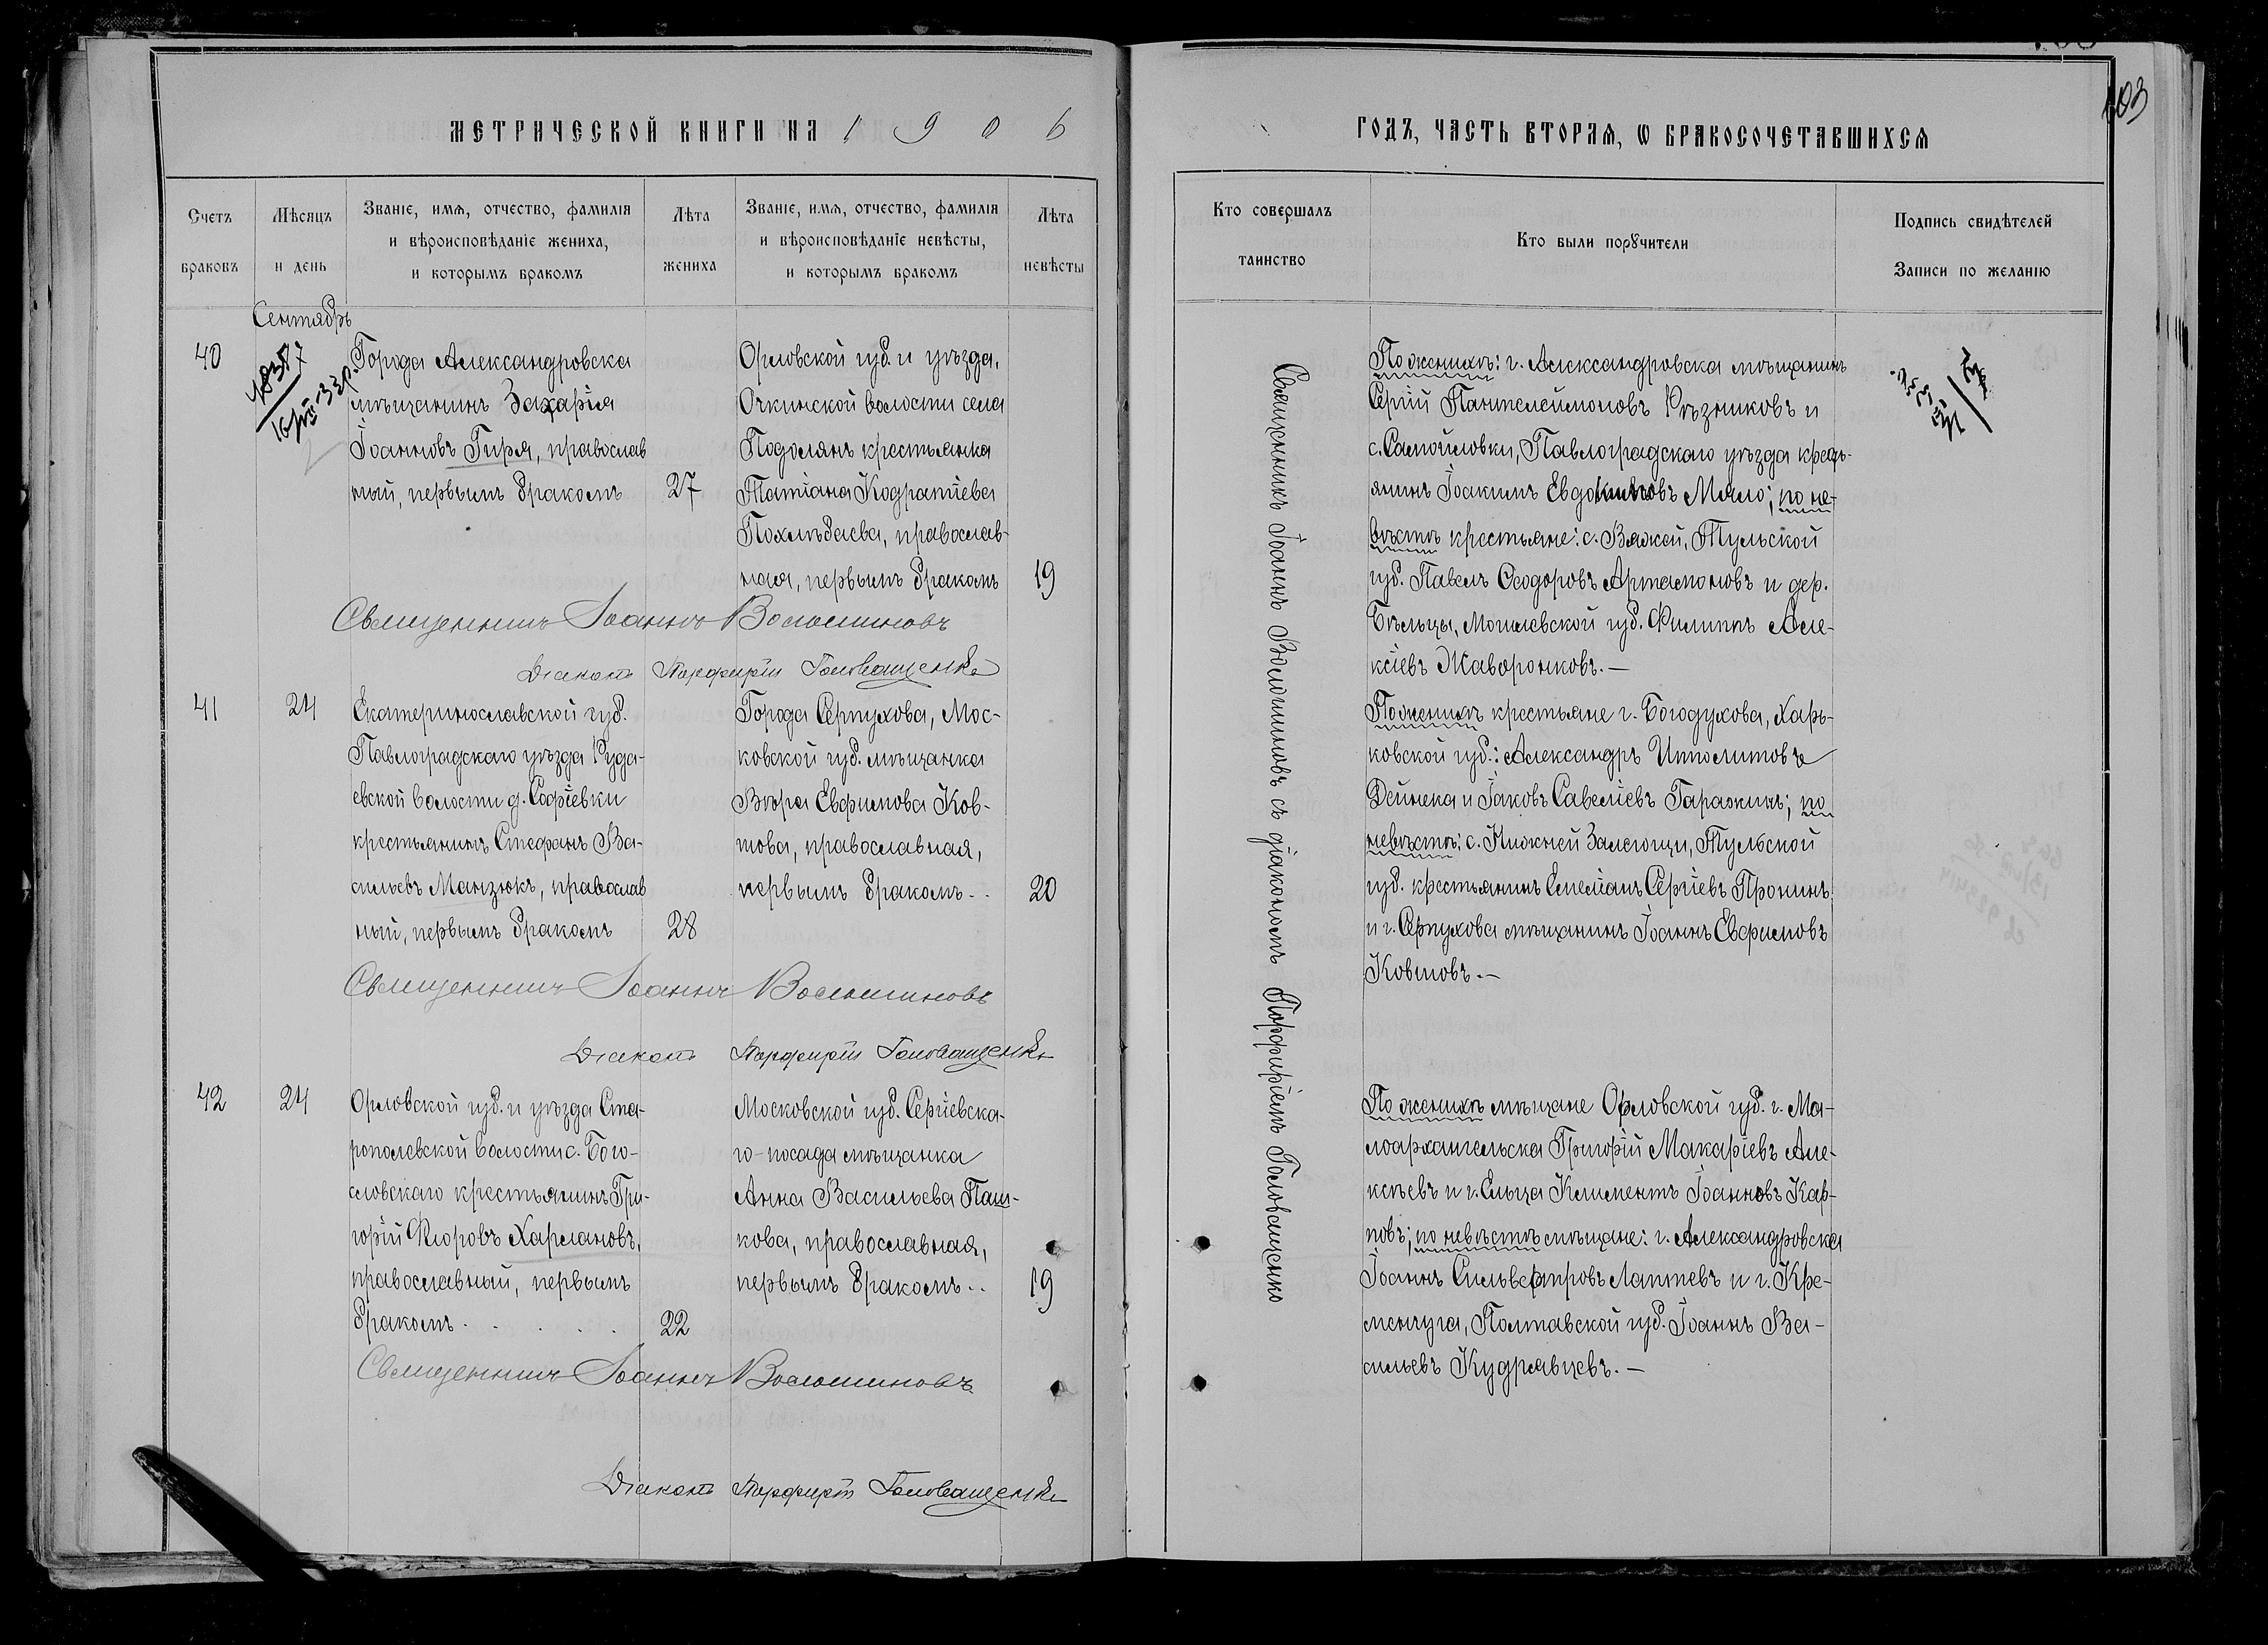 МЕТРИЧЕСКОЙ КНИГИ НА 1906
Счетъ браковъ
Мѣсяцъ и день
Званіе, имя, отчество, фамилія
и вѣроисповѣданіе жениха,
и которымъ бракомъ
Лѣта жениха
Званіе, имя, отчество, фамилія
и вѣроисповѣданіе невѣсты,
и которымъ бракомъ
Лѣта невѣсты
Сентябрь
40
Города Александровска
мѣщанинъ Захарія
Іоанновъ Гиря, православ
ный, первымъ бракомъ
27
Орловской губ. и уѣзда,
Очкинской волости села
Подолянъ крестьянка
Татіана Кодратіева
Похлѣбаева, православ-
ная, первымъ бракомъ
19
Священникъ Іоаннъ Волошиновъ
Діаконъ Порфирій Головащенко
41
24
Екатеринославской губ.
Павлоградскаго уѣзда Руда-
евской волости д. Софіевки
крестьянинъ Стефанъ Ва-
сильевъ Манзюкъ, православ
ный, первымъ бракомъ
28
Города Серпухова, Мос-
ковской губ. мѣщанка
Вѣра Евфимова Ков-
това, православная,
первымъ бракомъ..
20
Священникъ Іоаннъ Волошиновъ
Діаконъ Порфирій Головащенко
42
24
Орловской губ. и уѣзда Ста-
рополевской волости с. Бого-
словскаго крестьянинъ Гри-
горій Флоровъ Харлановъ,
православный, первымъ
бракомъ. . . . .
22
Московской губ. Сергіевска-
го-посада мѣщанка
Анна Васильева Паш-
кова, православная,
первымъ бракомъ..
19
Священникъ Іоаннъ Волошиновъ
Діаконъ Порфирій Головащенко
103
ГОДЪ, ЧАСТЬ ВТОРАЯ, Ѡ БРАКОСОЧЕТАВШИХСЯ
Кто совершалъ
таинство
Кто были порꙋчители
Подпись свидѣтелей
Записи по желанію
Священникъ Іоаннъ Волошиновъ съ діакономъ Порфиріемъ Головащенко
По женихѣ: г. Александровска мѣщанинъ
Сергій Пантелеймоновъ Рѣзниковъ и
с. Самойловки, Павлоградскаго уѣзда кресть-
янинъ Іоакимъ Евдокимовъ Мяло; по не-
вѣстѣ крестьяне: с. Вяжей, Тульской
губ. Павелъ Ѳеодоровъ Артамоновъ и дер.
Бѣльцы, Могилевской губ. Филиппъ Але-
ксіевъ Жаворонковъ.—
По женихѣ крестьяне г. Богодухова, Харь-
ковской губ.: Александръ Ипполитовъ
Дейнека и Іаковъ Савеліевъ Гаражинъ; по
невѣстѣ: с. Нижней Залегощи, Тульской
губ. крестьянинъ Емеліанъ Сергіевъ Пронинъ
и г. Серпухова мѣщанинъ Іоаннъ Евфимовъ
Ковтовъ.—
По женихѣ мѣщане Орловской губ. г. Ма-
лоархангельска Григорій Макаріевъ Але-
ксѣевъ и г. Ельца Климентъ Іоанновъ Кар-
повъ; по невѣстѣ мѣщане: г. Александровска
Іоаннъ Сильвестровъ Лаптевъ и г. Кре-
менчуга, Полтавской губ. Іоаннъ Ва-
сильевъ Кудрявцевъ.—